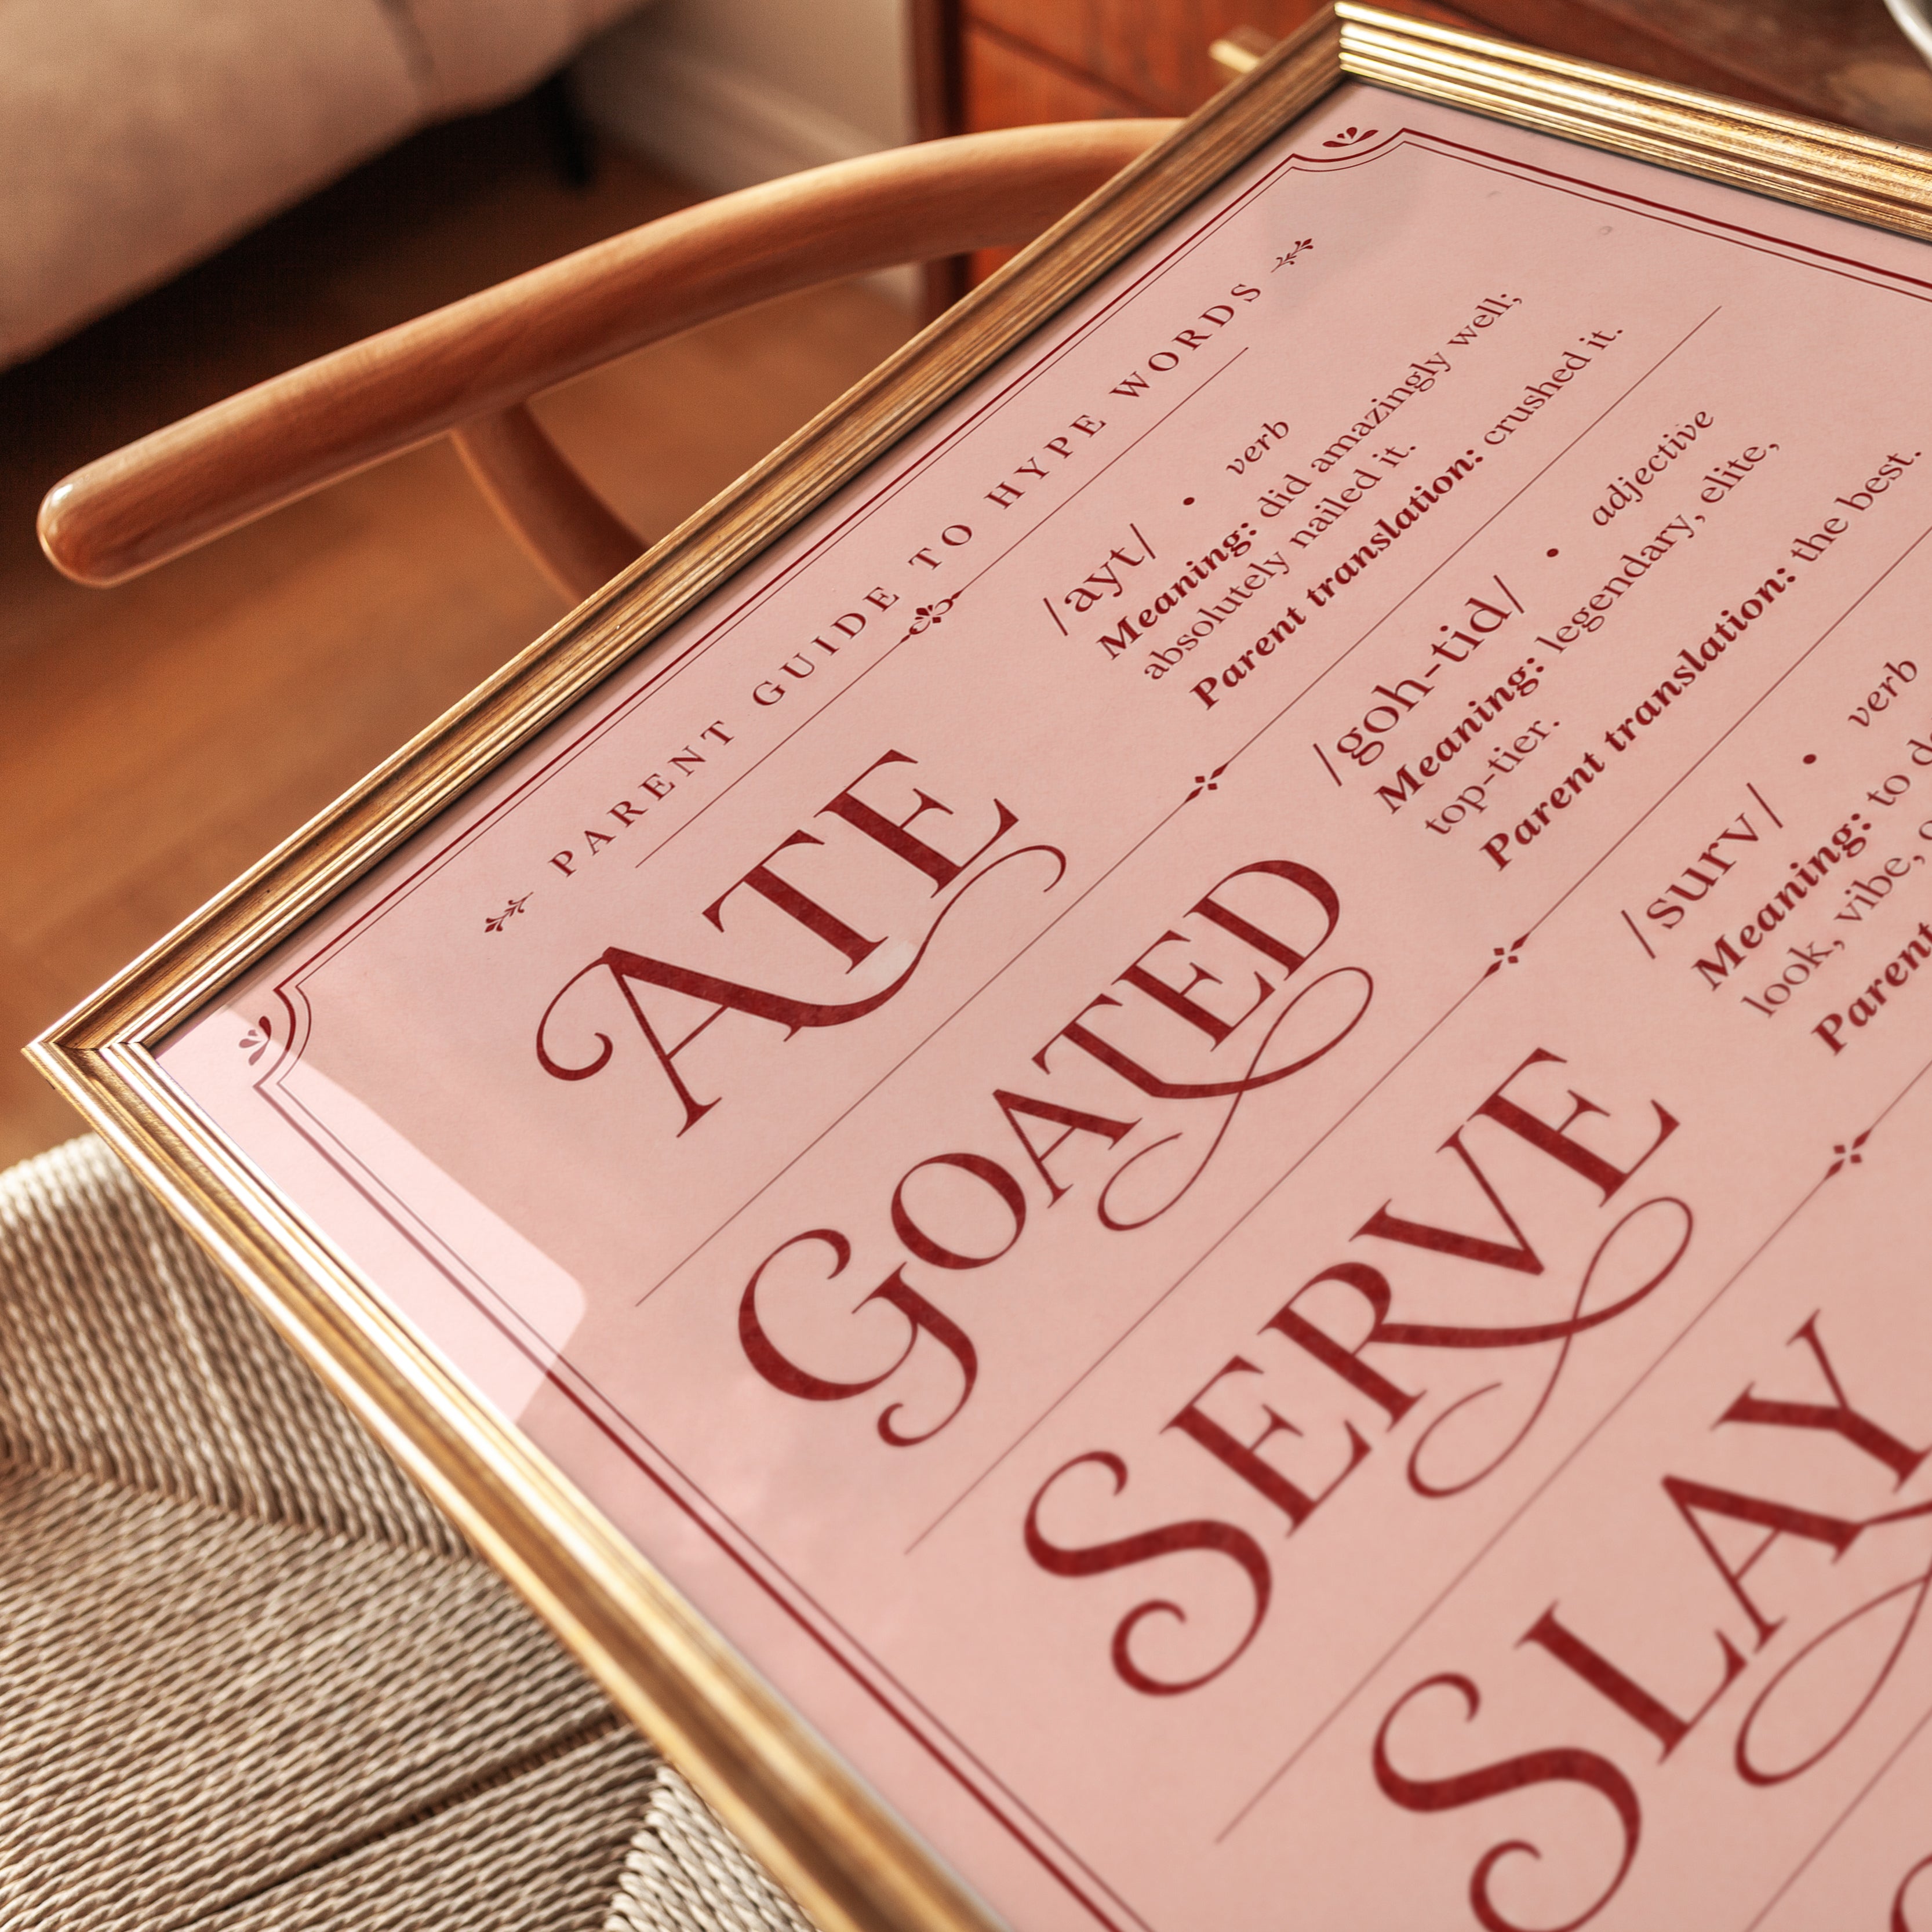 PARENT GUIDE TO HYPE WORDS
ATE
/ayt/ • verb
Meaning: did amazingly well;
absolutely nailed it.
Parent translation: crushed it.
GOATED
/goh-tid/ • adjective
Meaning: legendary, elite,
top-tier.
Parent translation: the best.
SERVE
/surv/ • verb
Meaning: to
look, vibe,
Parent
SLAY